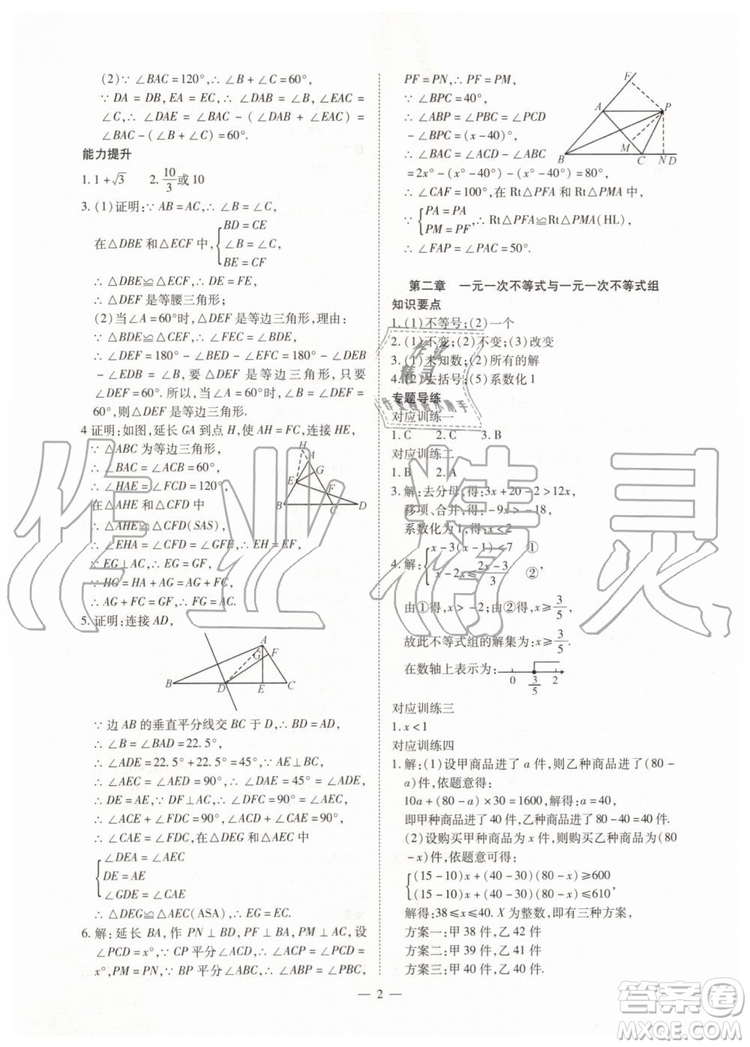 (2)∵ ∠BAC=120°,∴ ∠B+∠C=60°,
∵ DA=DB,EA=EC,∴ ∠DAB=∠B,∠EAC=
∠C,∴ ∠DAE=∠BAC-(∠DAB+∠EAC)=
∠BAC-(∠B+∠C)=60°.
能力提升
1. 1+√3　2. 10/3 或 10
3. (1)证明:∵ AB=AC,∴ ∠B=∠C,
在△DBE 和△ECF 中,{BD=CE
∠B=∠C
BE=CF
∴ △DBE≌△ECF,∴ DE=FE,
∴ △DEF 是等腰三角形;
(2)当∠A=60°时,△DEF 是等边三角形,理由:
∵ △BDE≌△CEF,∴ ∠FEC=∠BDE,
∴ ∠DEF=180°-∠BED-∠FEC=180°-
∠BED-∠BDE=∠B,要△DEF 是等边三角形,只
要∠DEF=60°.所以,当∠A=60°时,∠B=∠
DEF=60°,则△DEF 是等边三角形.
4 证明:如图,延长 GA 到点 H,使 AH=CF,连接 HE,
∵ △ABC 为等边三角形,
∴ ∠BAC=∠ACB=60°
∴ ∠EAH=∠DCF,
在△AHE 和△CFD 中
∴ △AHE≌△CFD(SAS),
∴ ∠EHA=∠CFD=∠GFE,∴ EH=EF,
∵ EG⊥AC,∴ HG=GF,
∵ HG=HA+AG=AG+CF,
∴ AG+CF=GF,∴ GF=AG+CF.
5. 证明:连接 AD,
∵ 边 AB 的垂直平分线交 BC 于 D,∴ BD=DA,
∴ ∠B=∠BAD=22.5°,
∴ ∠ADE=22.5°+22.5°=45°,
∵ AE⊥BC,∴ ∠AED=90°,∴ ∠DAE=45°,
∴ DE=AE,∵ DF⊥AC,∴ ∠DFC=90°,
∴ ∠ACE+∠FDC=90°,∠ACE+∠CAE=90°,
∴ ∠CAE=∠FDC,在△DEG 和△AEC 中
{∠DEA=∠AEC
DE=AE
∠GDE=∠CAE
∴ △DEG≌△AEC(ASA),∴ EG=EC.
6. 解:延长 BA,作 PN⊥BD,PF⊥BA,PM⊥AC,设
∠PCD=x°,∵ CP 平分∠ACD,∴ ∠ACP=∠PCD
=x°,PM=PN,∵ BP 平分∠ABC,∴ ∠ABP=∠PBC,
PF=PN,∴ PF=PM,
∵ ∠BPC=40°,
∴ ∠ABP=∠PBC=∠PCD-
∠BPC=(x-40)°,
∴ ∠BAC=∠ACD-∠ABC
=2x°-(x°-40°)-(x°-40°)=80°,
∴ ∠CAF=100°,在 Rt△PFA 和 Rt△PMA 中,
∵ {PA=PA
PM=PF,∴ Rt△PFA≌Rt△PMA(HL),
∴ ∠FAP=∠PAC=50°.
第二章　一元一次不等式与一元一次不等式组
知识要点
1. (1)不等号;(2)一个
2. (1)不变;(2)不变;(3)改变
3. (1)未知数;(2)所有的解
4. (2)去括号;(5)系数化 1
专题导练
对应训练一
1. C　2. C　3. B
对应训练二
1. B　2. A
3. 解:去分母,得:3x+20-2>12x,
移项、合并,得:-9x>-18,
系数化为 1,得:x<2
4. 解:{x-3(x-1)<7　①
x-2≤(2x-3)/3　②
由①得,x>-2,由②得,x≥3/5,
故此不等式组的解集为:x≥3/5
在数轴上表示为:0 3/5 2
对应训练三
1. x<1
对应训练四
1. 解:(1)设甲商品进了 a 件,则乙种商品进了(80-
a)件,依题意得:
10a+(80-a)×30=1600,解得:a=40,
即甲种商品进了 40 件,乙种商品进了 40 件.
(2)设购买甲种商品为 x 件,则购买乙种商品为(80
-x)件,依题意得:
{(15-10)x+(40-30)(80-x)≥600
(15-10)x+(40-30)(80-x)≤610,
解得:38≤x≤40. X 为整数,即有三种方案,
方案一:甲 38 件,乙 42 件
方案二:甲 39 件,乙 41 件
方案三:甲 40 件,乙 40 件.
— 2 —
作业精灵
答案圈
MXQE.COM